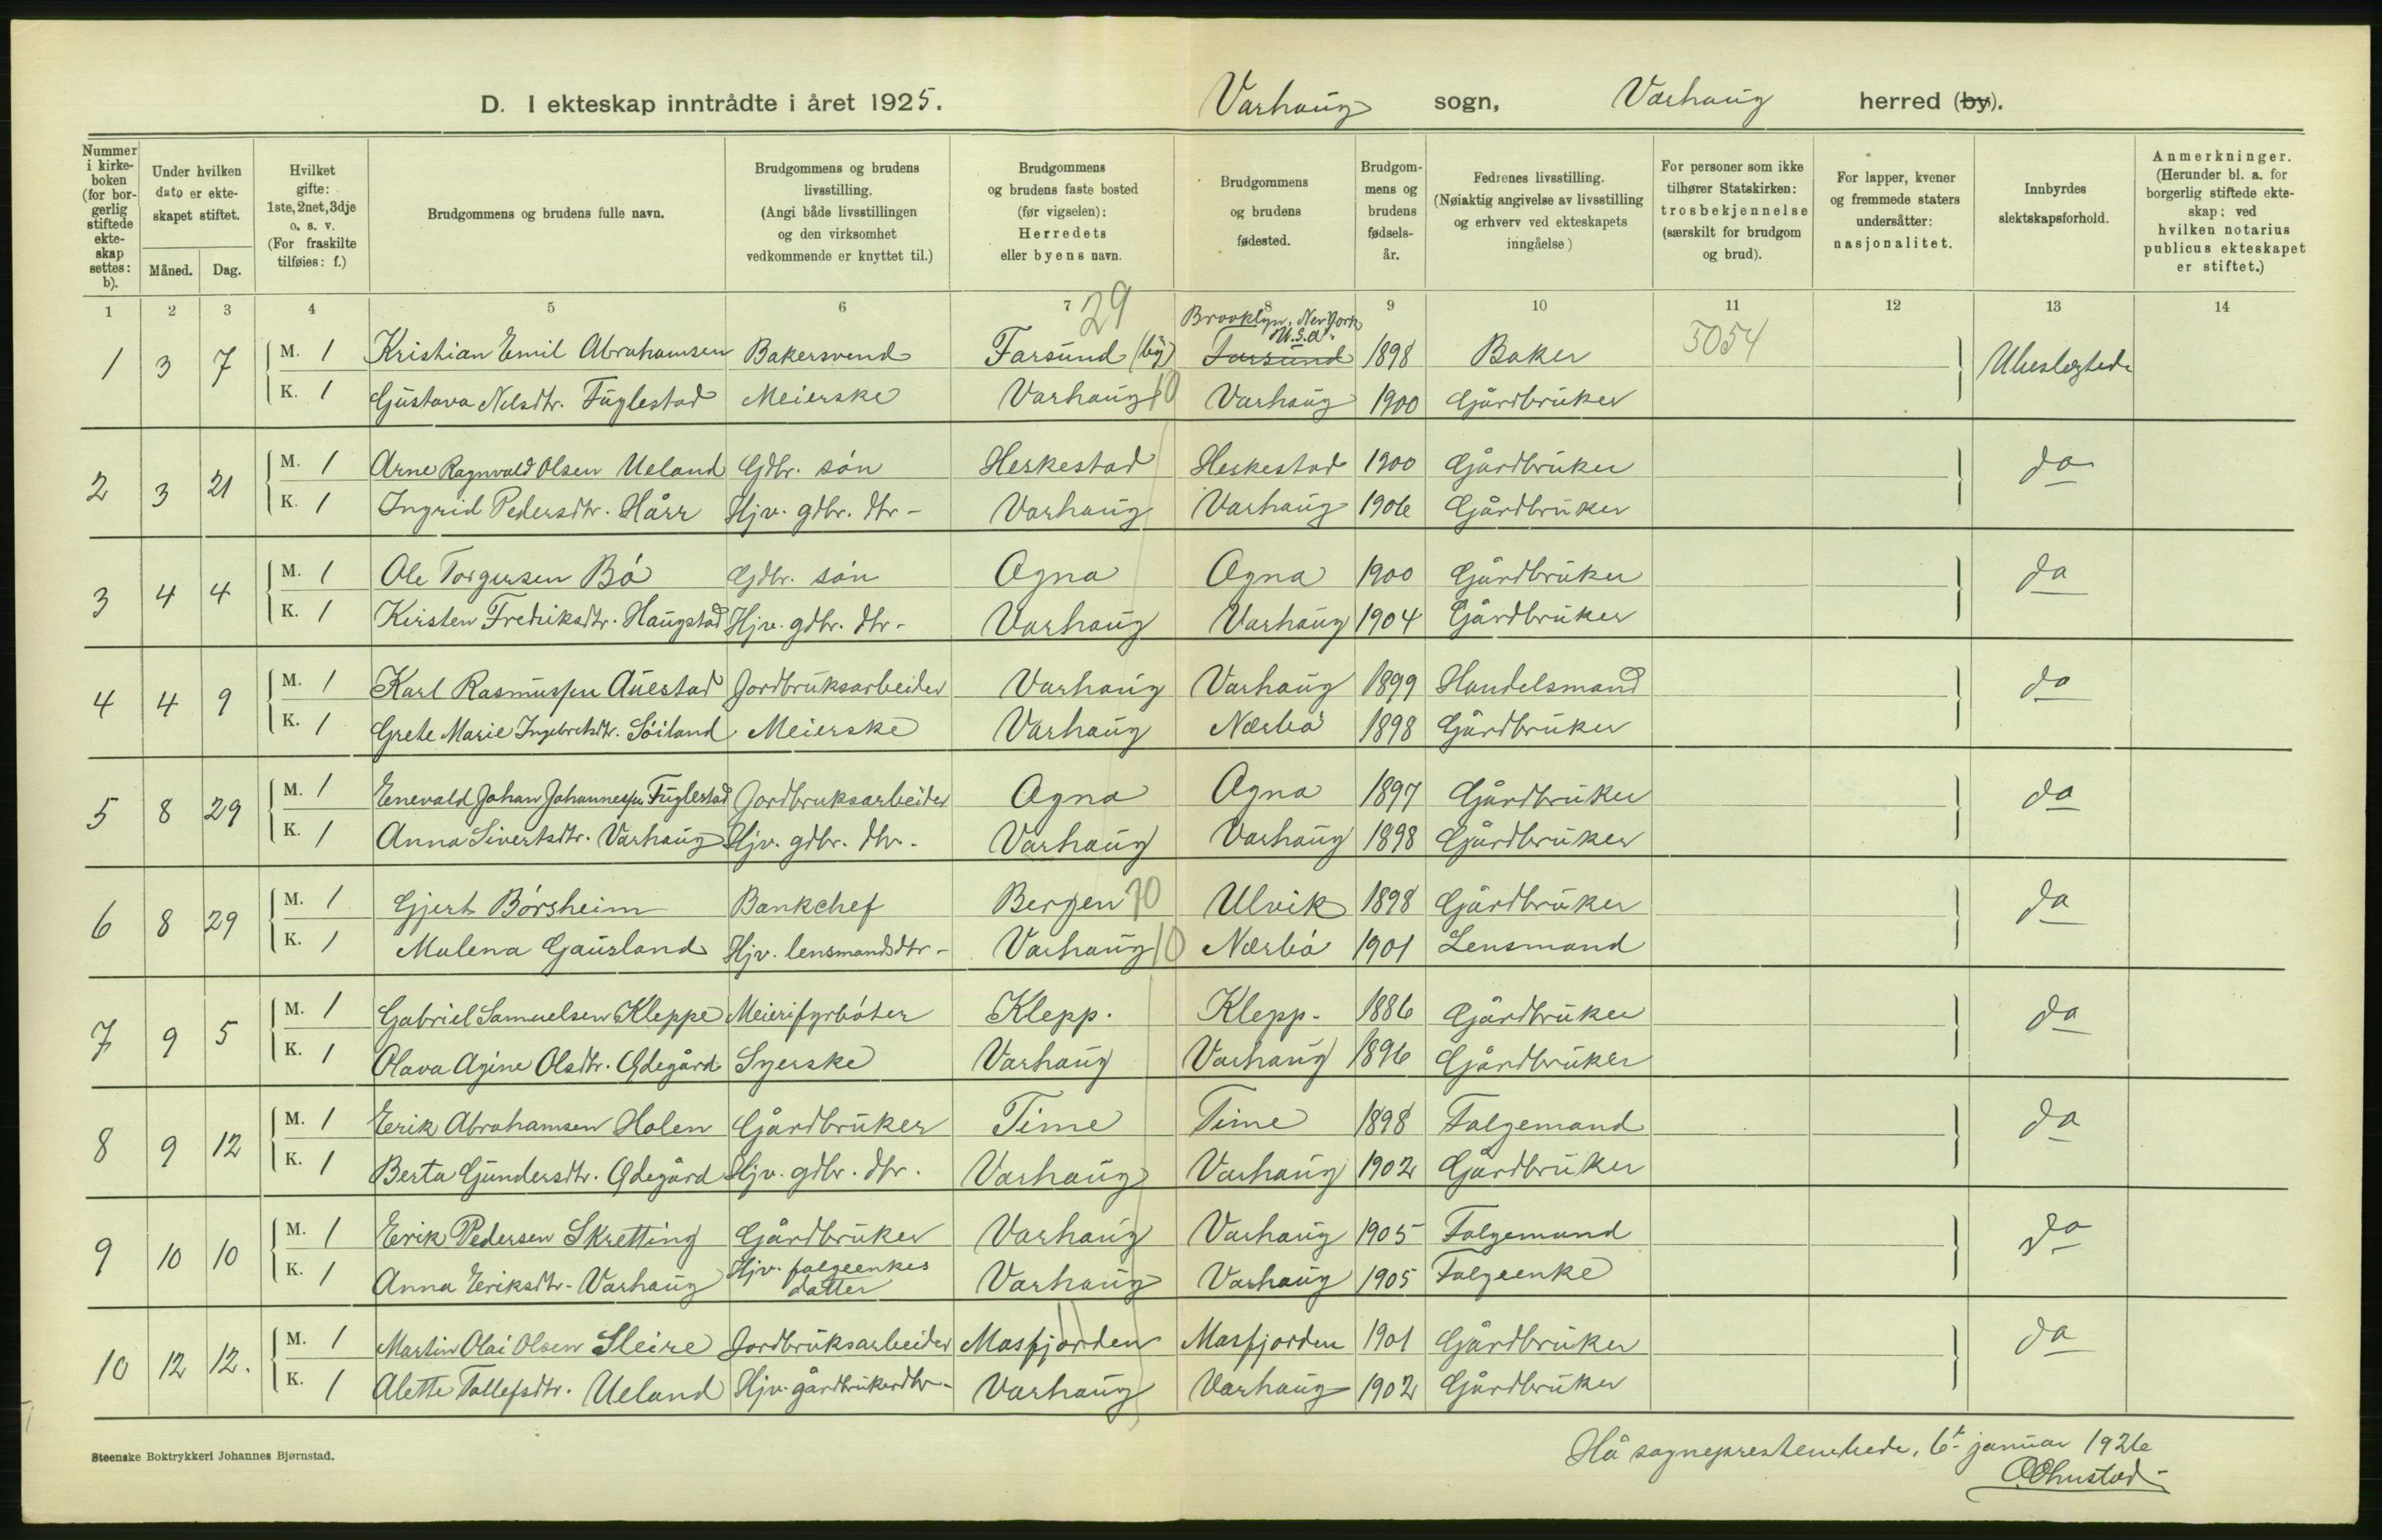 D. I ekteskap inntrådte i året 1925. Varhaug sogn, Varhaug herred (by).
Nummer i kirkeboken (for borgerlig stiftede ekteskap settes: b).
Under hvilken dato er ekteskapet stiftet.
Måned. Dag.
Hvilket gifte: 1ste, 2net, 3dje o. s. v. (For fraskilte tilføies: f.)
Brudgommens og brudens fulle navn.
Brudgommens og brudens livsstilling. (Angi både livsstillingen og den virksomhet vedkommende er knyttet til.)
Brudgommens og brudens faste bosted (før vigselen): Herredets eller byens navn.
Brudgommens og brudens fødested.
Brudgommens og brudens fødselsår.
Fedrenes livsstilling. (Nøiaktig angivelse av livsstilling og erhverv ved ekteskapets inngåelse)
For personer som ikke tilhører Statskirken: trosbekjennelse (særskilt for brudgom og brud).
For lapper, kvener og fremmede staters undersåtter: nasjonalitet.
Innbyrdes slektskapsforhold.
Anmerkninger. (Herunder bl. a. for borgerlig stiftede ekteskap: ved hvilken notarius publicus ekteskapet er stiftet.)
1 2 3 4 5 6 7 8 9 10 11 12 13 14
29
Brooklyn, New York
U.S.A.
1 3 7 M. 1 Kristian Emil Abrahamsen Bakersvend Farsund (by) Farsund 1898 Baker 5054 Ubeslegtede
K. 1 Gustava Nelsdtr. Fuglestad Meierske Varhaug 10 Varhaug 1900 Gårdbruker
2 3 21 M. 1 Arne Ragnvald Olsen Ueland Gdbr. søn Heskestad Heskestad 1900 Gårdbruker do
K. 1 Ingrid Pedersdtr. Hårr Hjv. gdbr. dtr - Varhaug Varhaug 1906 Gårdbruker
3 4 4 M. 1 Ole Torgersen Bø Gdbr. søn Ogna Ogna 1900 Gårdbruker do
K. 1 Kirsten Fredriksdtr. Haugstad Hjv. gdbr. dtr - Varhaug Varhaug 1904 Gårdbruker
4 4 9 M. 1 Karl Rasmussen Auestad Jordbruksarbeider Varhaug Varhaug 1899 Handelsmand do
K. 1 Grete Marie Ingebretsdtr. Søiland Meierske Varhaug Nærbø 1898 Gårdbruker
5 8 29 M. 1 Enevald Johan Johannessen Fuglestad Jordbruksarbeider Ogna Ogna 1897 Gårdbruker do
K. 1 Anna Sivertsdtr. Varhaug Hjv. gdbr. dtr. Varhaug Varhaug 1898 Gårdbruker
6 8 29 M. 1 Gjert Børsheim Bankchef Bergen 70 Ulvik 1898 Gårdbruker do
K. 1 Malena Gausland Hjv. lensmandsdtr - Varhaug 10 Nærbø 1901 Lensmand
7 9 5 M. 1 Gabriel Samuelsen Kleppe Meierifyrbøter Klepp. Klepp. 1886 Gårdbruker do
K. 1 Olava Agine Olsdtr. Ødegård Syerske Varhaug Varhaug 1896 Gårdbruker
8 9 12 M. 1 Erik Abrahamsen Holen Gårdbruker Time Time 1898 Folgemand do
K. 1 Berta Gundersdtr. Ødegård Hjv. gdbr. dtr. Varhaug Varhaug 1902 Gårdbruker
9 10 10 M. 1 Erik Pedersen Skretting Gårdbruker Varhaug Varhaug 1905 Folgemand do
K. 1 Anna Eriksdtr - Varhaug Hjv. folgeenkes datter Varhaug Varhaug 1905 Folgeenke
10 12 12. M. 1 Martin Olai Olsen Sleire Jordbruksarbeider Masfjorden Masfjorden 1901 Gårdbruker do
K. 1 Alette Tollefsdtr. Ueland Hjv. gårdbrukerdtr - Varhaug Varhaug 1902 Gårdbruker
Steenske Boktrykkeri Johannes Bjørnstad.
Hå sogneprestembede, 6t januar 1926